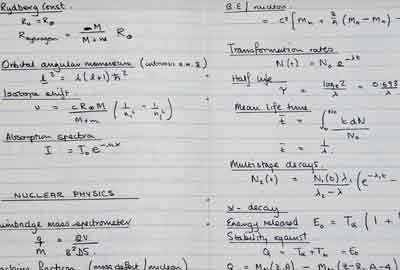 Rydberg Const.
R₀ = R∞
R_Hydrogen = M / (M + m) R∞
Orbital angular momentum
l² = l(l+1) ħ²
Isotope shift.
ν = c R∞ M / (M + m) (1/n₁² − 1/n₂²)
Absorption spectra
I = I₀ e
NUCLEAR PHYSICS
mass spectrometer
q/m =
fraction (mass defect / nucleon)
B.E / nucleon
= c² [ Mₙ + (Mₕ − Mₙ) −
Transformation rates.
N(t) = N₀ e^−λt
Half life
τ = logₑ2 / λ = 0.693 / λ
Mean life time
t̄ = ∫₀^N₀ t dN / N₀
t̄ = 1/λ
Multistage decays.
N₂(t) = N₁(0) λ₁ / (λ₂ − λ) (e^−λ₁t −
α - decay
Energy released E₀ = Tα (1 +
Stability against
Q = Tα + T = E₀
Q = M (Z, A) − M (Z-2, A-4)